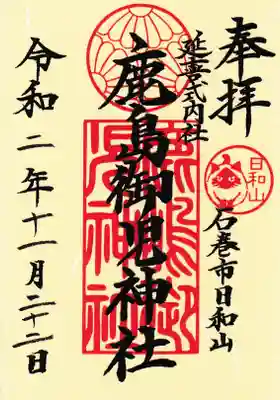 奉拝
日和山
石巻市日和山
延喜式内社
鹿島御児神社
令和二年十一月二十二日